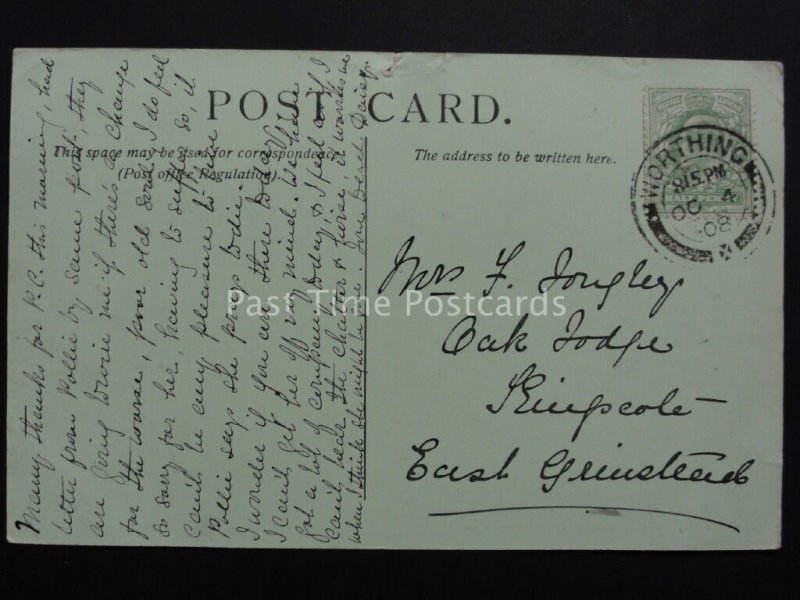 POST CARD.
This space may be used for correspondence
(Post office Regulation).
The address to be written here.
WORTHING
8.15 PM
OC 4
08
Mrs F. Longley
Oak Lodge
Kingscote
East Grinstead
Many thanks for P.C. this morning, had
letter from Pollie by same post, they
are going to wire me if there's a change
for the worse, poor old Soul I do feel
so sorry for her, having to suffer so, it
can't be any pleasure to live
Pollie says she prays to die.
I wonder if you are there today
I can't get her off my mind. We have
got a lot of company today & I feel as if I
can't bear the chatter & noise, it worries me
when I think she might be gone. Love Dear Daisy.
Past Time Postcards